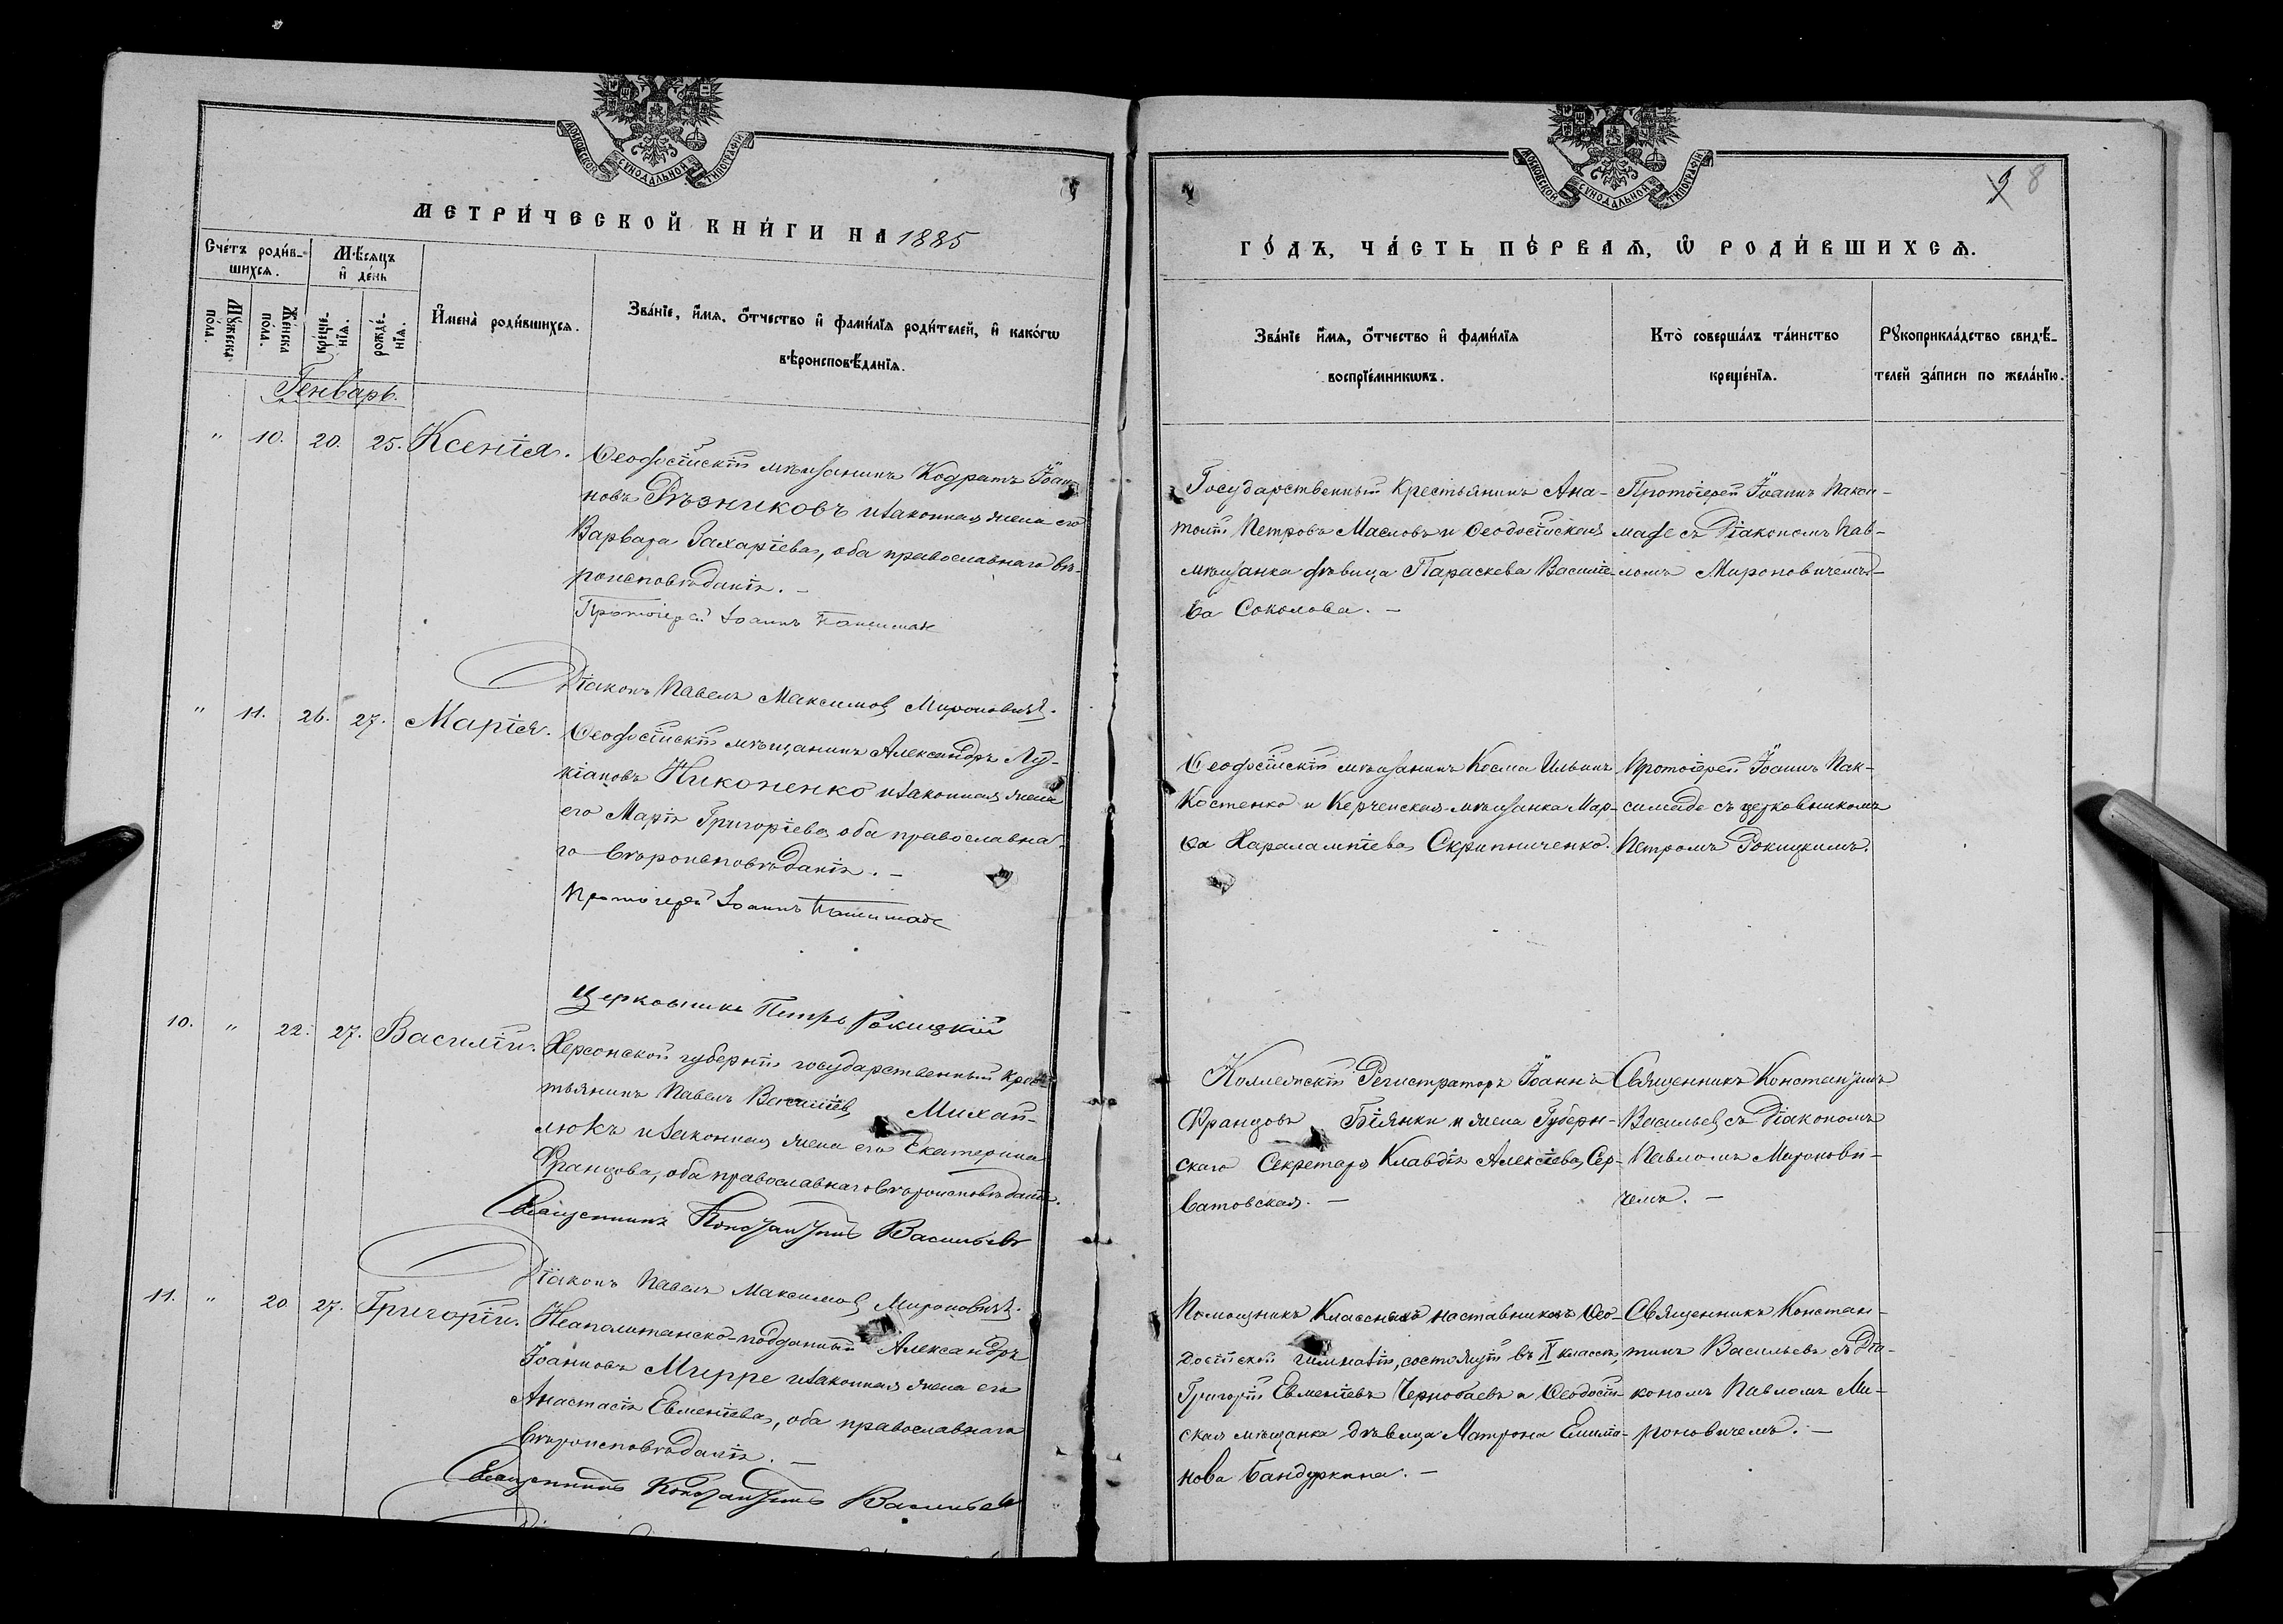 МОСКОВСКОЙ СѴНОДАЛЬНОЙ ТИПОГРАФІИ
МЕТРИ́ЧЕСКОЙ КНИ́ГИ НА 1885
Сче́тъ роди́в-
шихсѧ.
Мѣ́сѧцъ
и҆ де́нь
Мꙋ́жеска
по́ла.
Же́нска
по́ла.
креще́-
нїѧ.
рожде́-
нїѧ.
И҆мена̀ роди́вшихсѧ.
Зва́нїе, и҆́мѧ, ѻ҆́тчество и҆ фами́лїѧ роди́телей, и҆ како́гѡ
вѣроисповѣ́данїѧ.
Генварь.
" 10. 20. 25. Ксенія.
Ѳеодосійскій мѣщанинъ Кодратъ Іоан-
новъ Рѣзниковъ и законная жена его
Варвара Захаріева, оба православнаго вѣ-
роисповѣданія. –
Протоіерей Іоаннъ Паксимаде
Діаконъ Павелъ Максимов Мироновичъ.
" 11. 26. 27. Марія.
Ѳеодосійскій мѣщанинъ Александръ Лу-
кіановъ Никоненко и законная жена
его Марія Григоріева, оба православна-
го вѣроисповѣданія. –
Протоіерей Іоаннъ Паксимаде
Церковникъ Петръ Рокицкій
10. " 22. 27. Василій.
Херсонской губерніи государственный крес-
тьянинъ Павелъ Василіев Михай-
люкъ и законная жена его Екатерина
Францова, оба православнаго вѣроисповѣданія.
Священникъ Константинъ Васильевъ
Діаконъ Павелъ Максимов Мироновичъ.
11. " 20 27. Григорій.
Неаполитанско-подданный Александръ
Іоанновъ Мирре и законная жена его
Анастасія Евменіева, оба православнаго
вѣроисповѣданія. –
Священникъ Константинъ Васильевъ
МОСКОВСКОЙ СѴНОДАЛЬНОЙ ТИПОГРАФІИ
9 8
ГО́ДЪ, ЧА́СТЬ ПЕ́РВАѦ, Ѡ҆ РОДИ́ВШИХСѦ.
Зва́нїе и҆́мѧ, ѻ҆́тчество и҆ фами́лїѧ
воспрїе́мникѡвъ.
Кто̀ соверша́лъ та́инство
креще́нїѧ.
Рꙋкоприкла́дство свидѣ́-
телей за́писи по жела́нїю.
Государственный крестьянинъ Ана-
толій Петровъ Масловъ и Ѳеодосійская
мѣщанка дѣвица Параскева Василіе-
ва Соколова. –
Протоіерей Іоаннъ Пакси-
маде съ Діакономъ Пав-
ломъ Мироновичемъ –
Ѳеодосійскій мѣщанинъ Косма Ильинъ
Костенко и Керченская мѣщанка Мар-
ѳа Харалампіева Скрипниченко.
Протоіерей Іоаннъ Пак-
симаде съ церковникомъ
Петромъ Рокицкимъ.
Коллежскій Регистраторъ Іоаннъ
Францовъ Біянки и жена Губерн-
скаго Секретаря Клавдія Алексіева Сер-
ватовская. –
Священникъ Константинъ
Васильев съ Діакономъ
Павломъ Миронови-
чемъ. –
Помощникъ Классныхъ наставниковъ Ѳео-
досійской гимназіи, состоящій въ X классѣ,
Григорій Евменіевъ Чернобаевъ и Ѳеодосій-
ская мѣщанка дѣвица Матрона Емилія-
нова Бандуркина. –
Священникъ Констан-
тинъ Васильевъ съ Діа-
кономъ Павломъ Ми-
роновичемъ. –